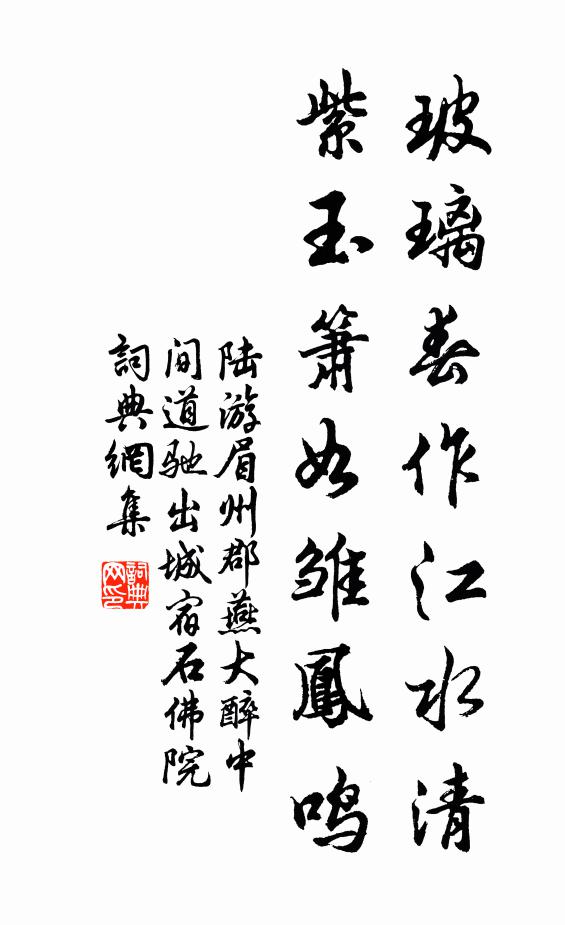 玻璃春作江水清
紫玉簫如雛鳳鳴
陆游眉州郡燕大醉中
间道驰出城宿石佛院
詞典網集
詞典
网印